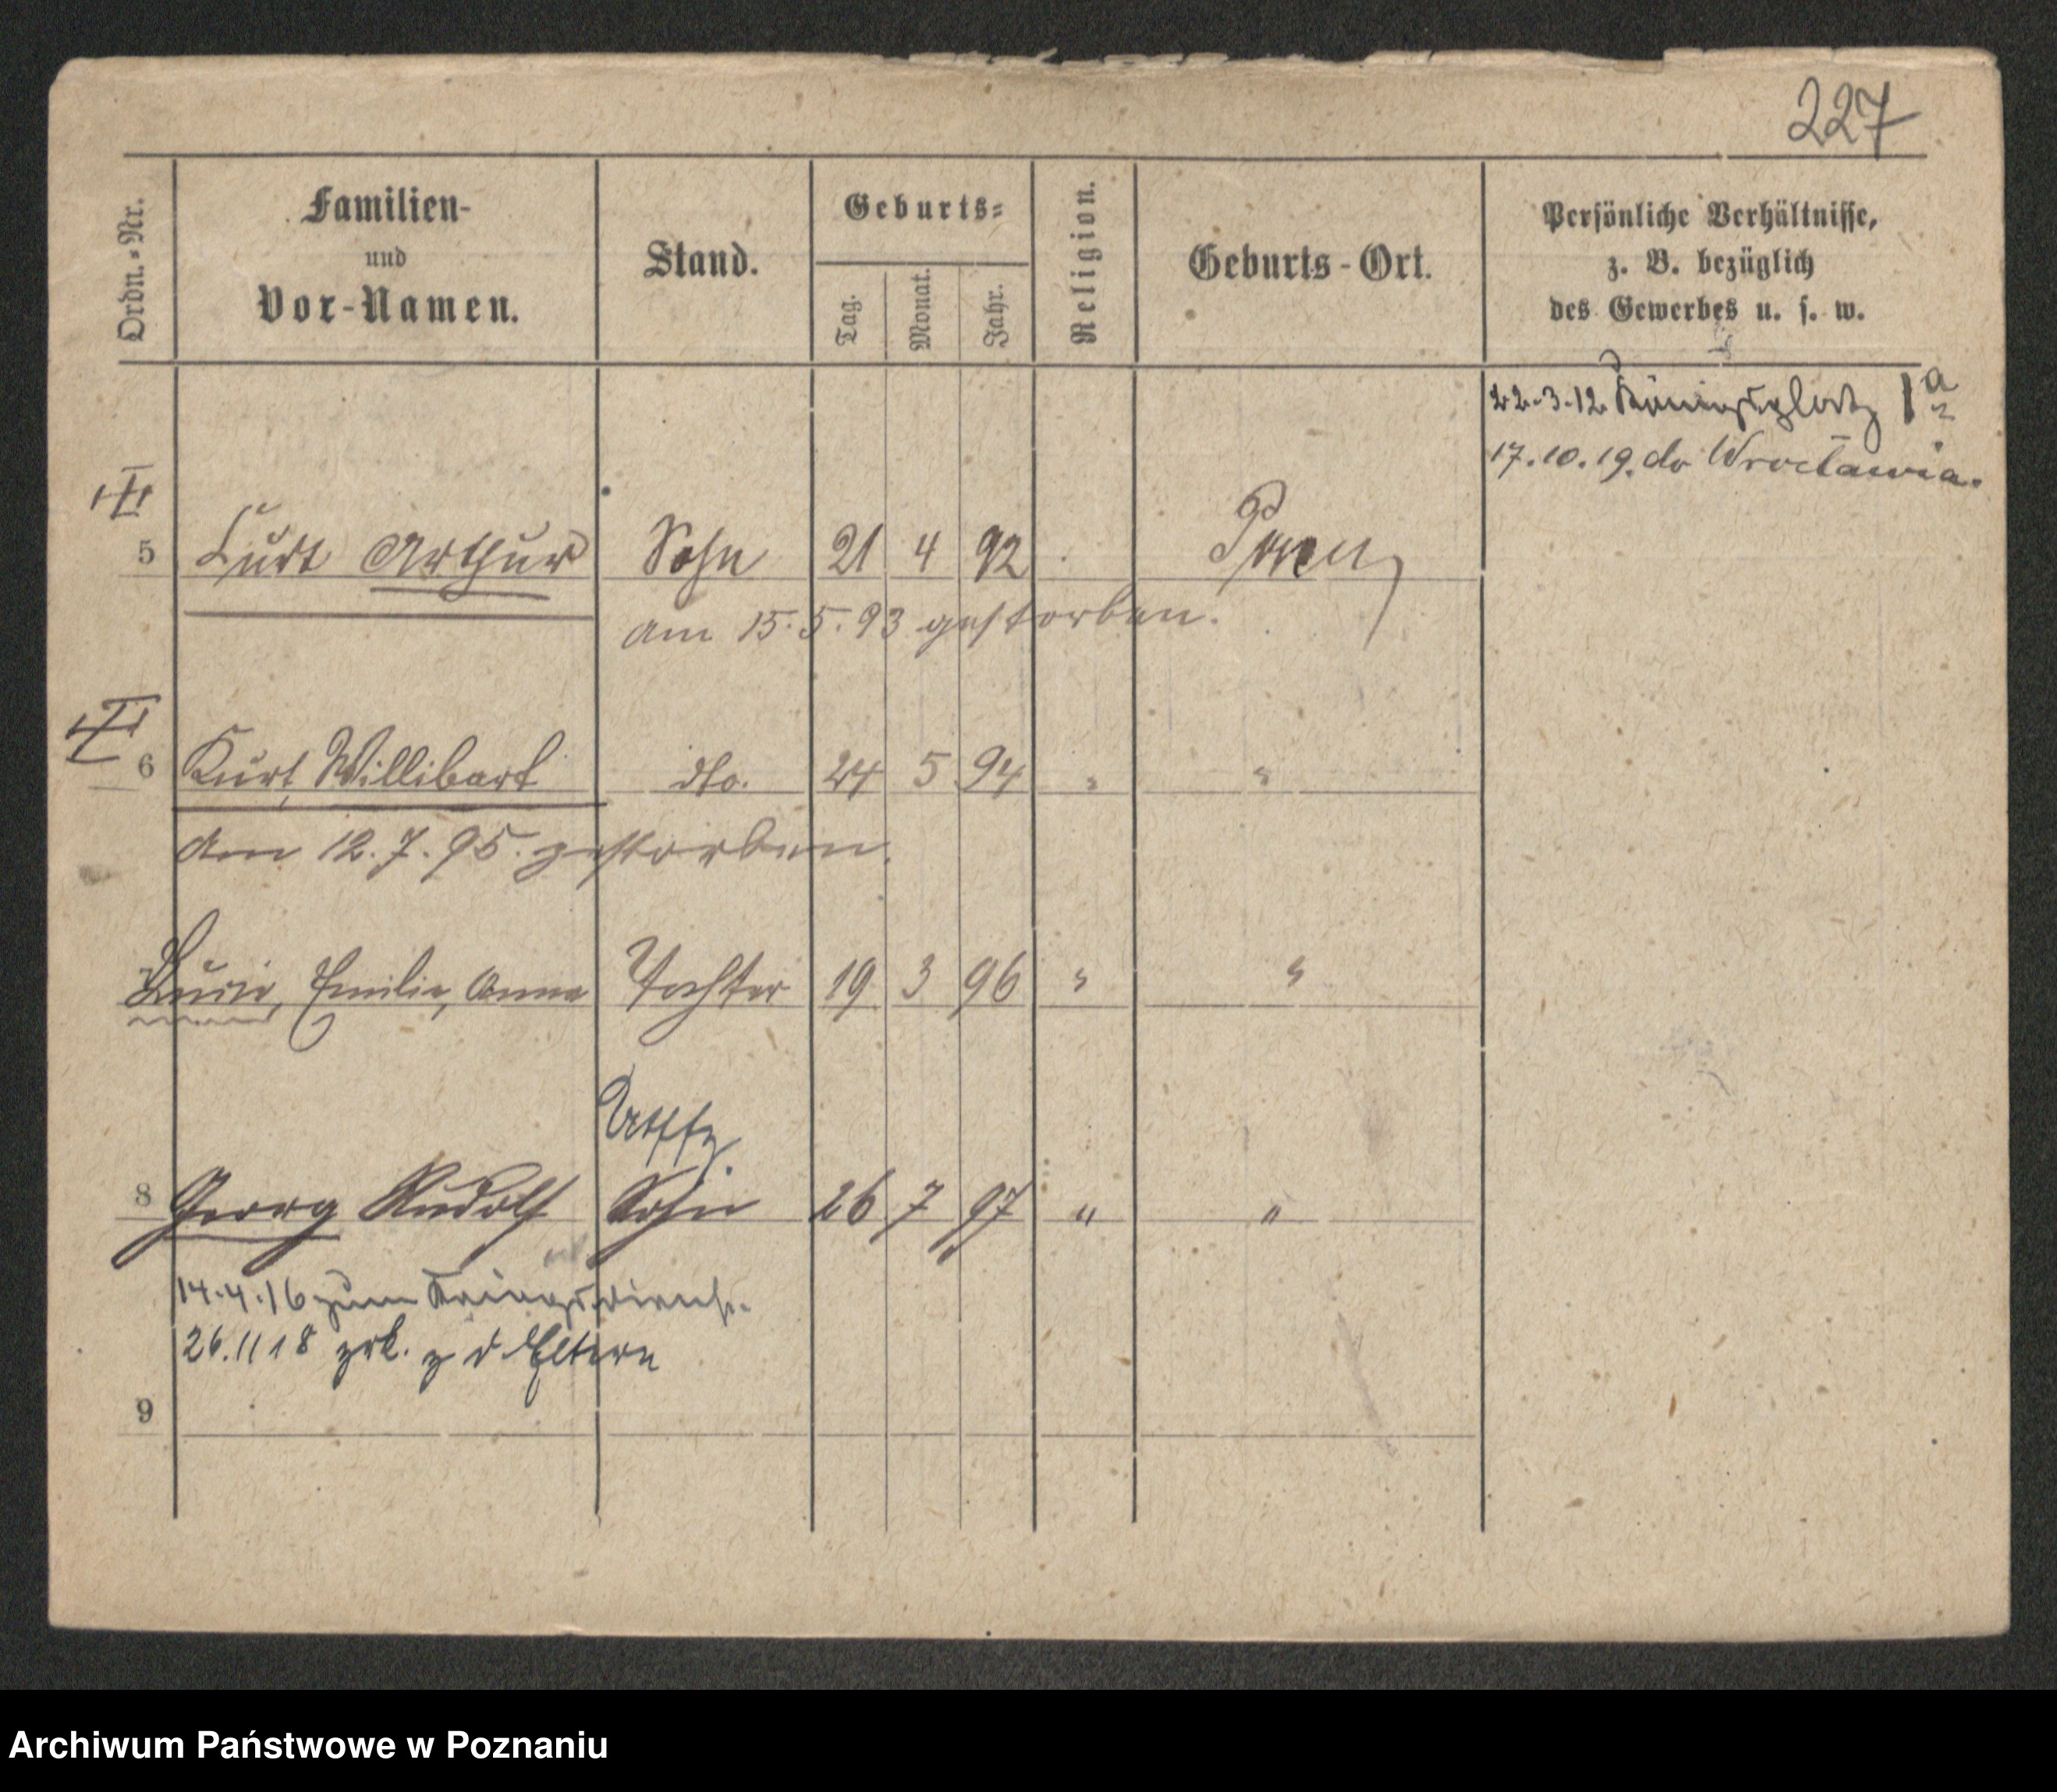 227
Ordn.-Nr.
Familien-
und
Vor-Namen.
Stand.
Geburts-
Tag.
Monat.
Jahr.
Religion.
Geburts-Ort.
Persönliche Verhältnisse,
z. B. bezüglich
des Gewerbes u. s. w.
22.3.12. Königsplatz 1a
17.10.19. do Wrocławia.
5 Curt Arthur Sohn 21 4 92
am 15.5.93 gestorben.
6 Kurt, Willibart dto. 24 5 94 " "
am 12.7.95. gestorben.
Emilie, Anna Tochter 19 3 96 " "
Uffz.
8 Georg Rudolf Sohn 26 7 97 " "
14.4.16 zum Kriegsdienst.
26.11 18 zrk. z d Eltern
9
Archiwum Państwowe w Poznaniu